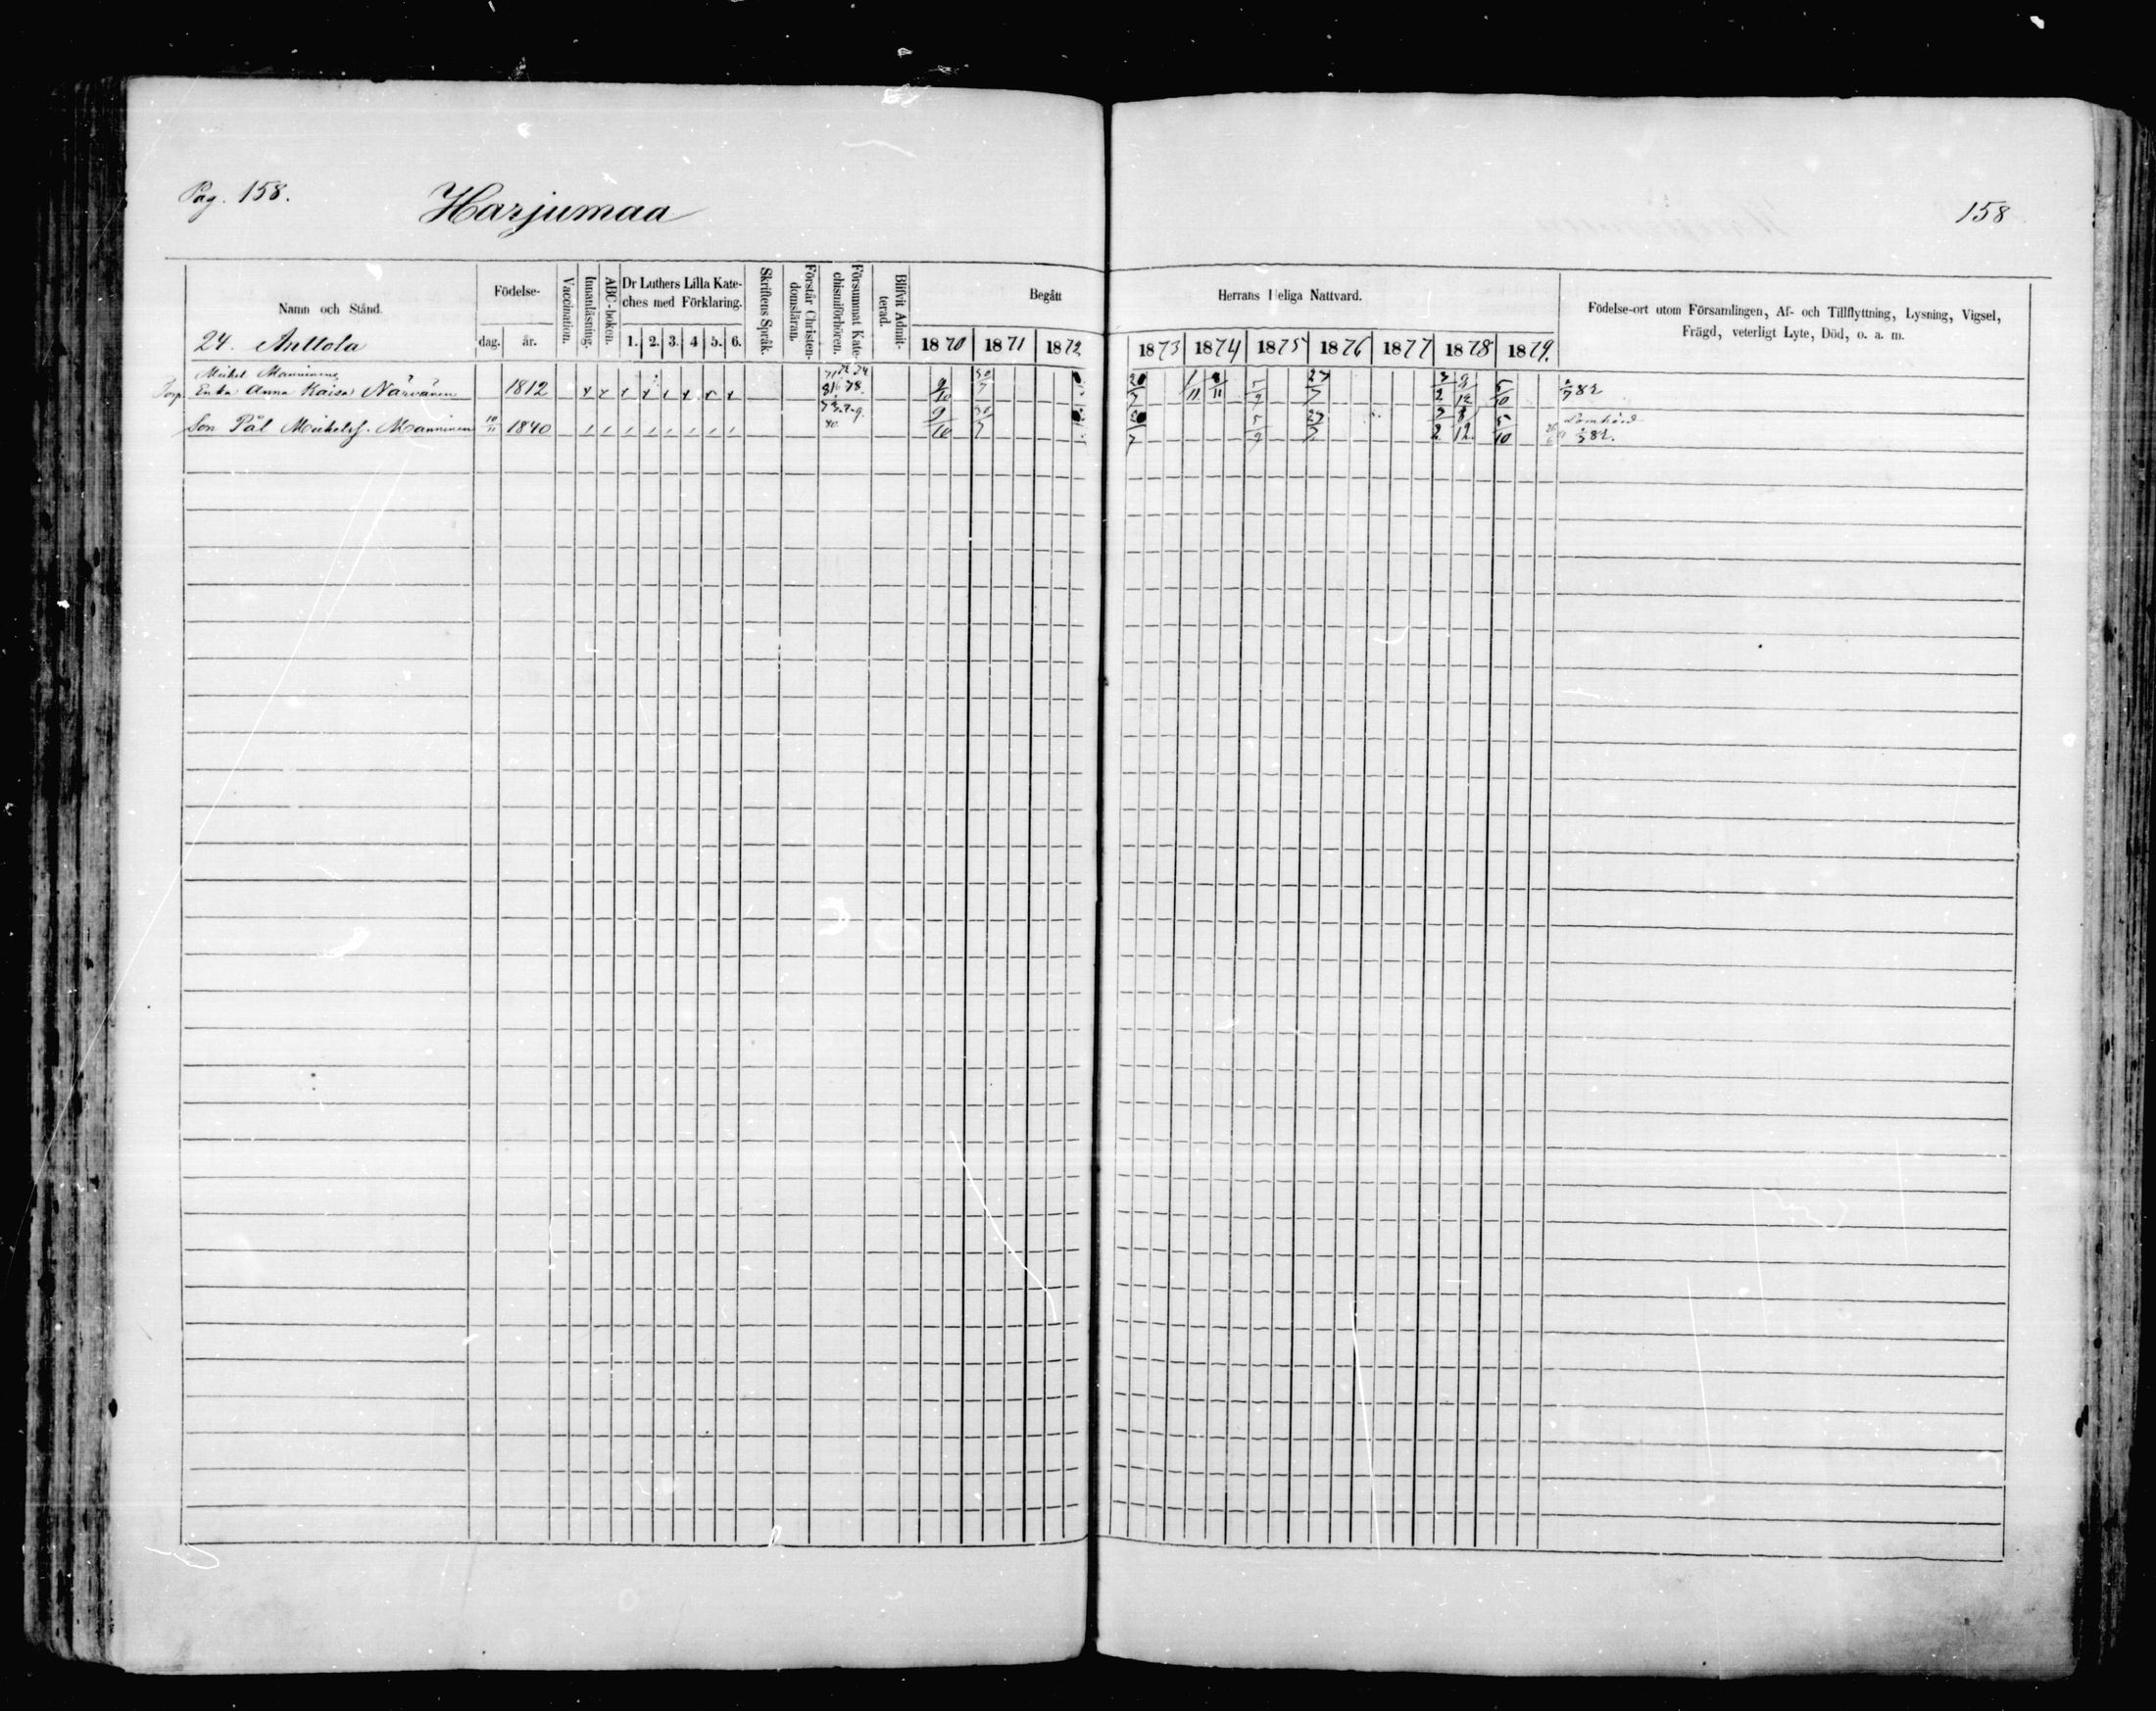 Pag. 158.
Harjumaa
158
Namn och Stånd.
Födelse-
dag.
år.
Vaccination.
Innanläsning.
ABC-boken.
Dr Luthers Lilla Kate-
ches med Förklaring.
1. 2. 3. 4 5. 6.
Skriftens Språk.
Förstår Christen-
domsläran.
Försummat Kate-
chismiförhören.
Blifvit Admit-
terad.
Begått
Herrans Heliga Nattvard.
1870 1871 1872
1873 1874 1875 1876 1877 1878 1879.
Födelse-ort utom Församlingen, Af- och Tillflyttning, Lysning, Vigsel,
Frägd, veterligt Lyte, Död, o. a. m.
24. Anttola
Mickel Manninens
Torp. Enka Anna Kaisa Närvänen 1812 78. 9/10 30/7 20/7 1/11 8/11 5/9 27/7 5/10
Son Pål Mickelss. Manninen 10/11 1840 80. 9/10 30/7 20/7 5/9 27/7 5/10 Lomhörd